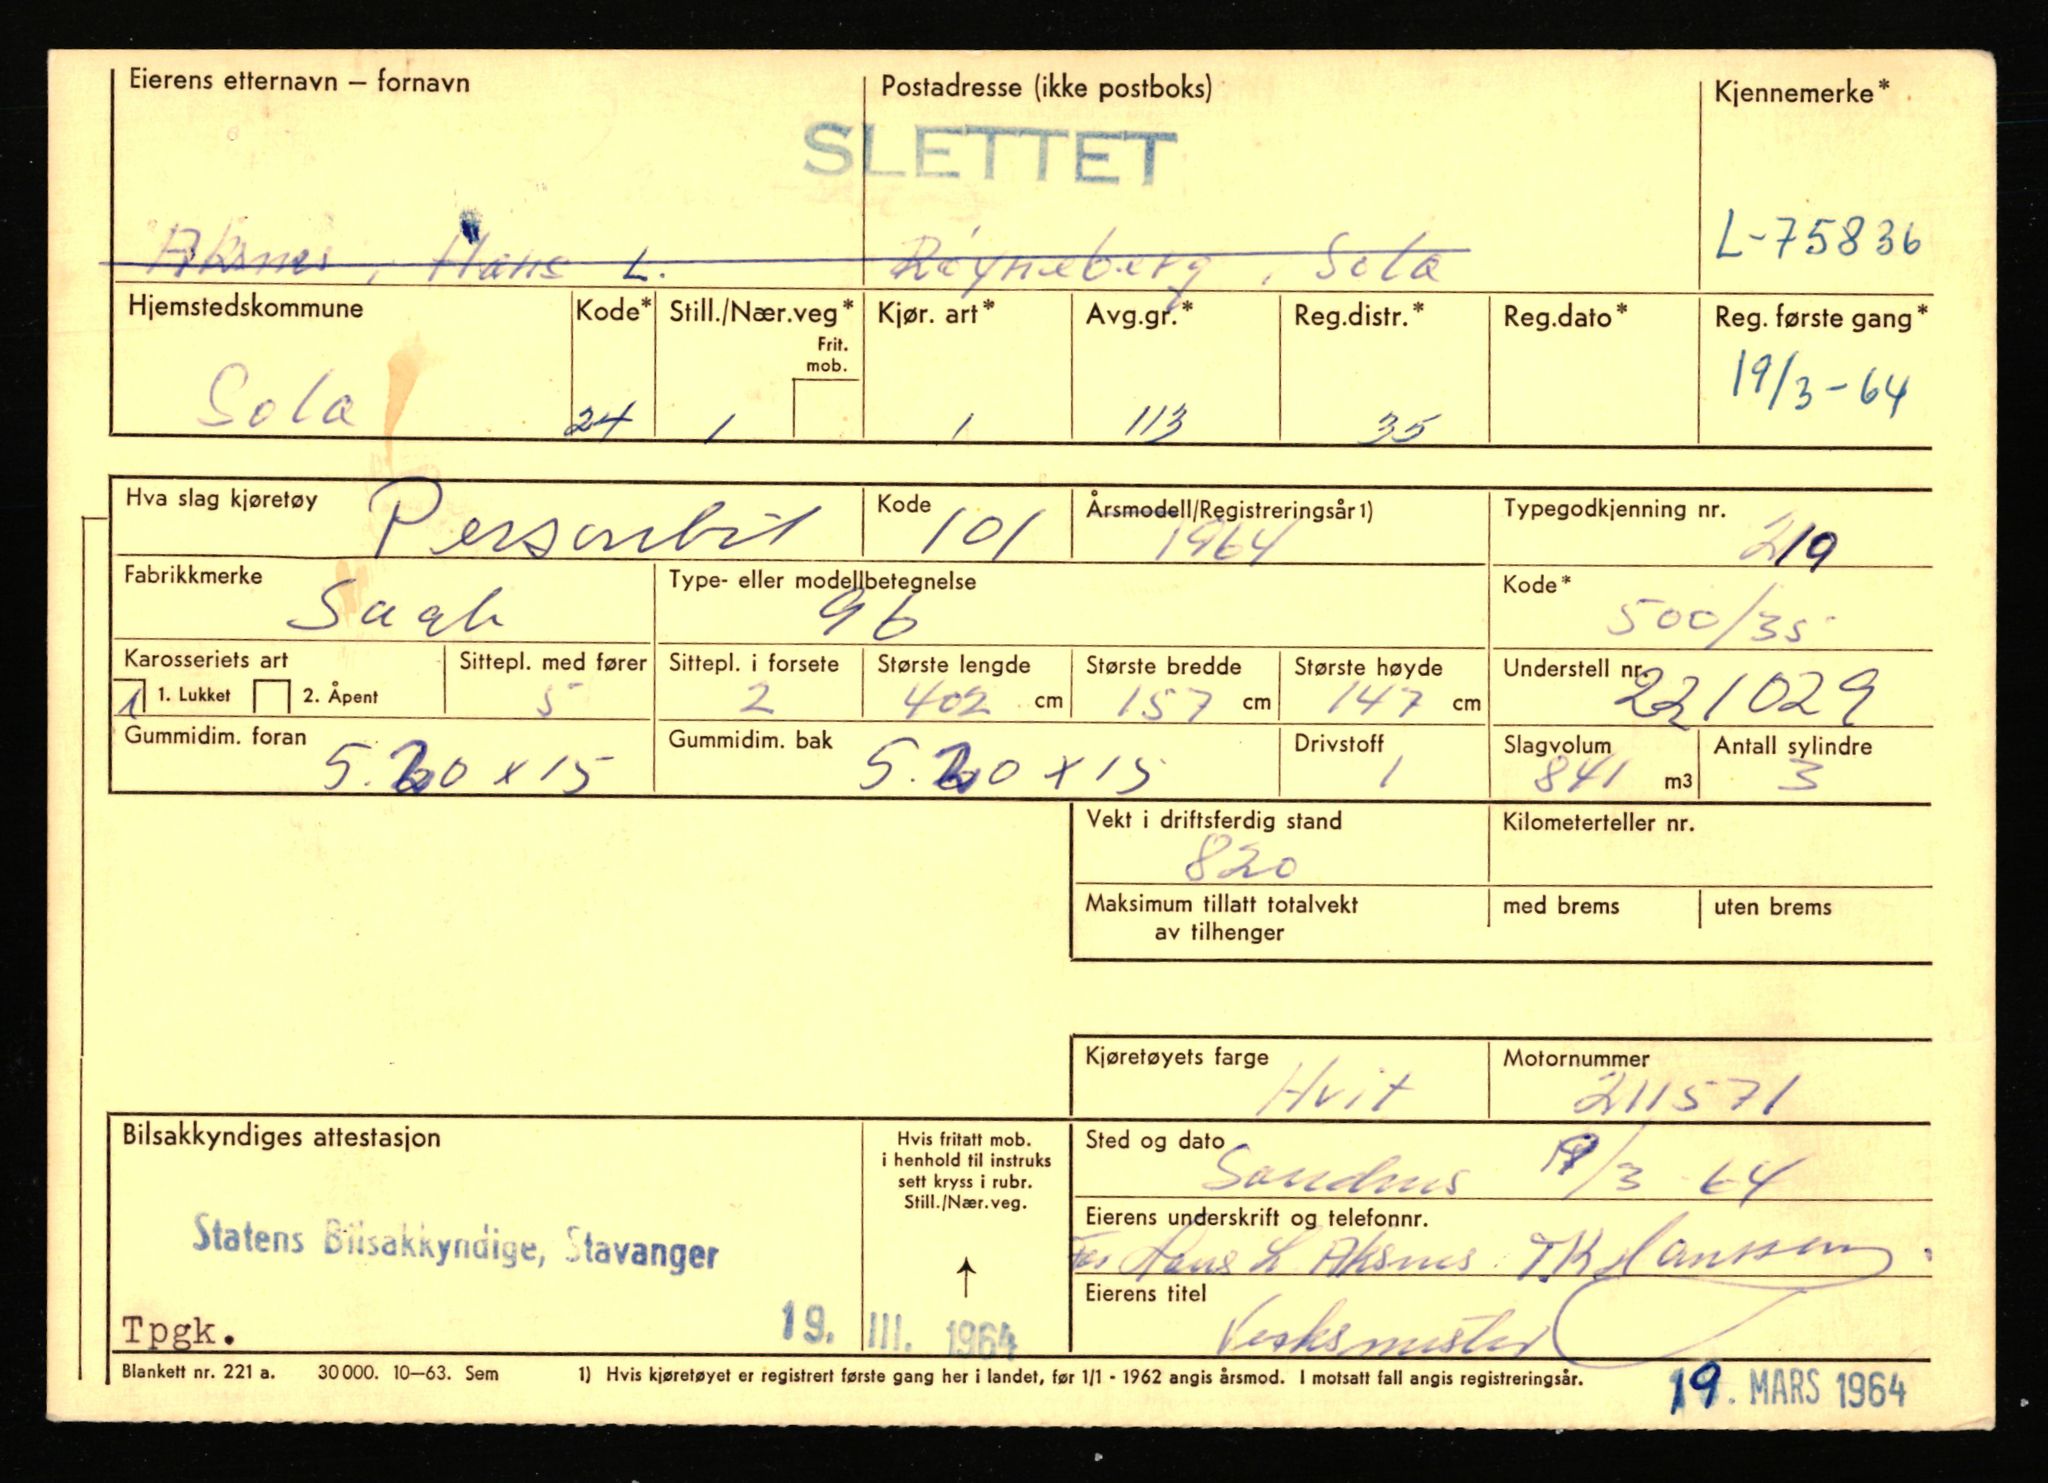 Eierens etternavn – fornavn Postadresse (ikke postboks) Kjennemerke*
SLETTET
Aksnes, Hans L. Røyneberg, Sola L-75836
Hjemstedskommune Kode* Still./Nær.veg* Kjør. art* Avg.gr.* Reg.distr.* Reg.dato* Reg. første gang*
Frit.
mob.
Sola 24 1 1 113 35 19/3-64
Hva slag kjøretøy Personbil Kode 101 Årsmodell/Registreringsår1) 1964 Typegodkjenning nr. 219
Fabrikkmerke Saab Type- eller modellbetegnelse 96 Kode* 500/35
Karosseriets art Sittepl. med fører Sittepl. i forsete Største lengde Største bredde Største høyde Understell nr.
1 1. Lukket 2. Åpent 5 2 402 cm 157 cm 147 cm 221029
Gummidim. foran Gummidim. bak Drivstoff Slagvolum Antall sylindre
5.20 x 15 5.20 x 15 1 841 m3 3
Vekt i driftsferdig stand Kilometerteller nr.
820
Maksimum tillatt totalvekt med brems uten brems
av tilhenger
Kjøretøyets farge Motornummer
Hvit 211571
Bilsakkyndiges attestasjon
Hvis fritatt mob.
i henhold til instruks
sett kryss i rubr.
Still./Nær.veg.
Sted og dato
Sandnes 19/3 64
Statens Bilsakkyndige, Stavanger
Eierens underskrift og telefonnr.
For Hans L Aksnes TK Hanssen
Eierens titel
Verksmester
Tpgk. 19. III. 1964
Blankett nr. 221 a. 30 000. 10–63. Sem 1) Hvis kjøretøyet er registrert første gang her i landet, før 1/1 - 1962 angis årsmod. I motsatt fall angis registreringsår.
19. MARS 1964